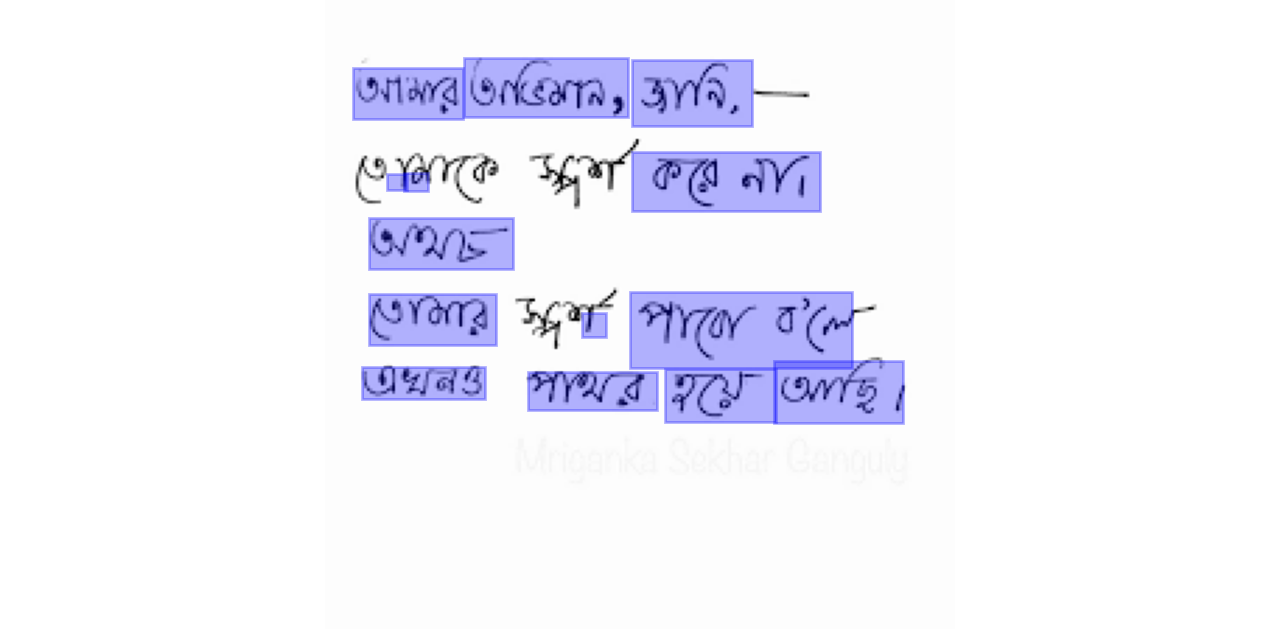 আমার অভিমান, জানি, —
তোমাকে স্পর্শ করে না।
অথচ
তোমার স্পর্শ পাবো ব'লে
এখনও পাথর হয়ে আছি।
Mriganka Sekhar Ganguly